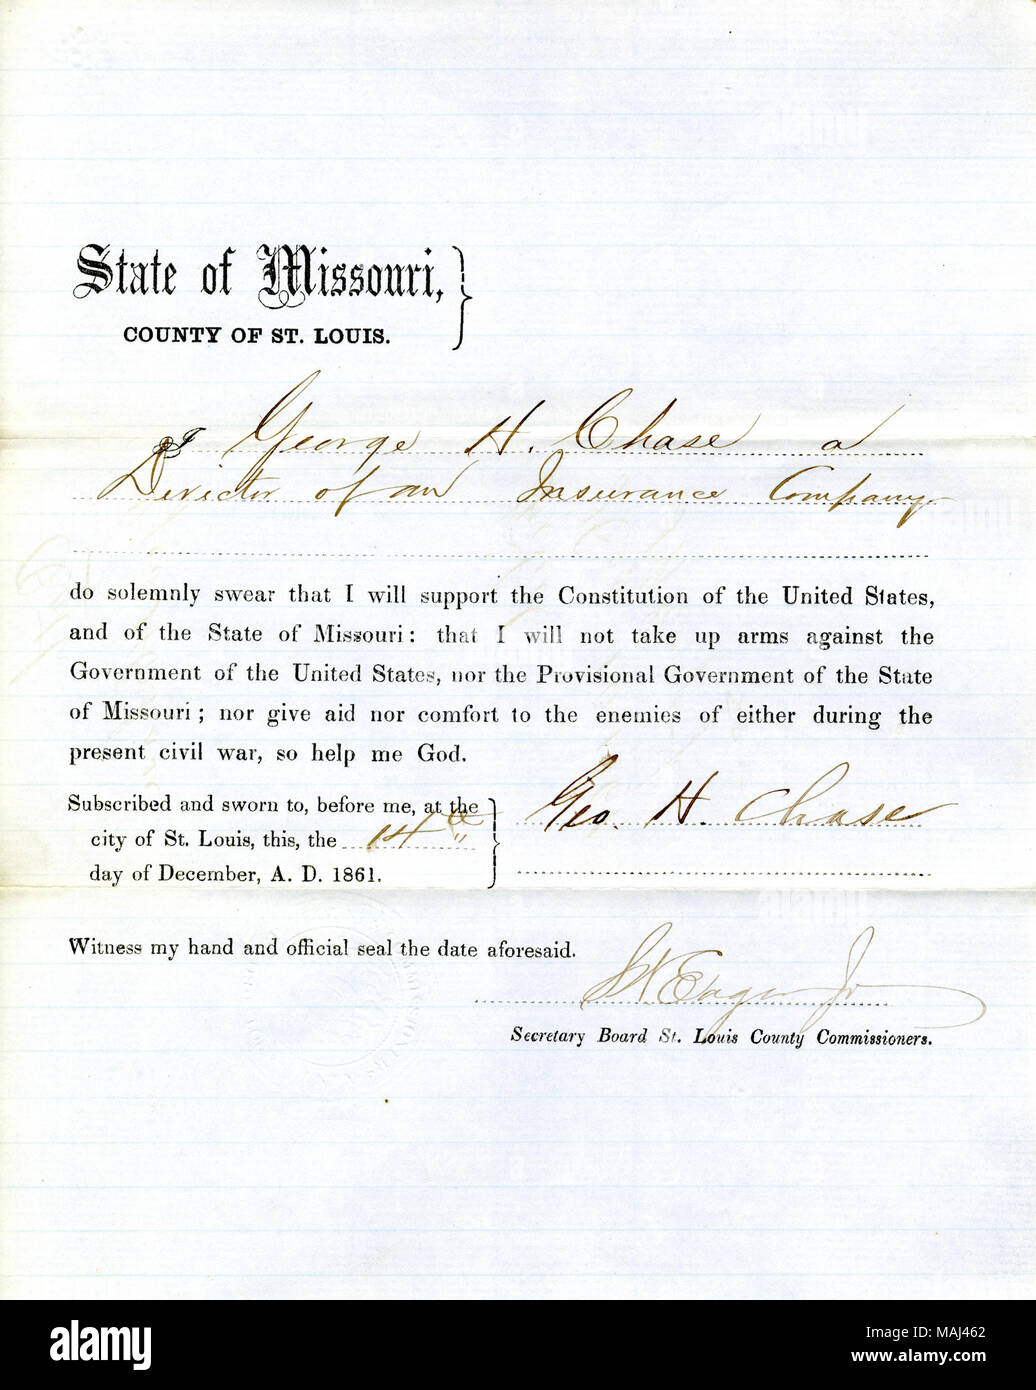 State of Missouri,
COUNTY OF ST. LOUIS.
I George H. Chase a
Director of an Insurance Company
do solemnly swear that I will support the Constitution of the United States,
and of the State of Missouri: that I will not take up arms against the
Government of the United States, nor the Provisional Government of the State
of Missouri; nor give aid nor comfort to the enemies of either during the
present civil war, so help me God.
Subscribed and sworn to, before me, at the
city of St. Louis, this, the 14th
day of December, A. D. 1861.
Geo. H. Chase
Witness my hand and official seal the date aforesaid.
Eager Jr
Secretary Board St. Louis County Commissioners.
alamy
Image ID: MAJ462
www.alamy.com